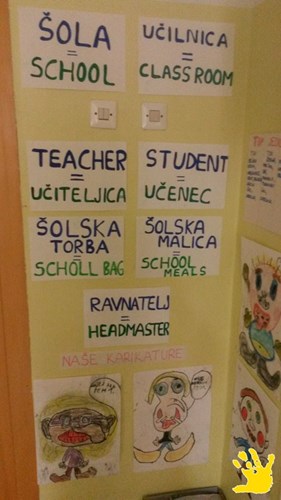 ŠOLA
=
SCHOOL
UČILNICA
=
CLASS ROOM
TEACHER
=
UČITELJICA
STUDENT
=
UČENEC
ŠOLSKA
TORBA
=
SCHOLL BAG
ŠOLSKA
MALICA
=
SCHOOL
MEALS
RAVNATELJ
=
HEADMASTER
NAŠE KARIKATURE